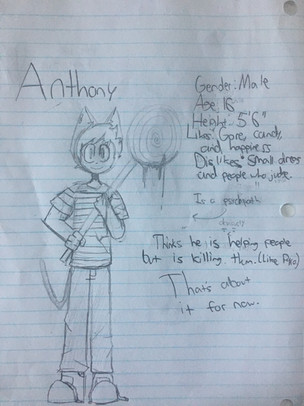 Anthony
Gender: Male
Age: 16
Height: 5'6"
Likes: Gore, candy,
and happiness
Dislikes: Small dress
and people who judge.
Is a psychopath
Thinks he is helping people
but is killing them. (Like Piko)
Thats about
it for now.